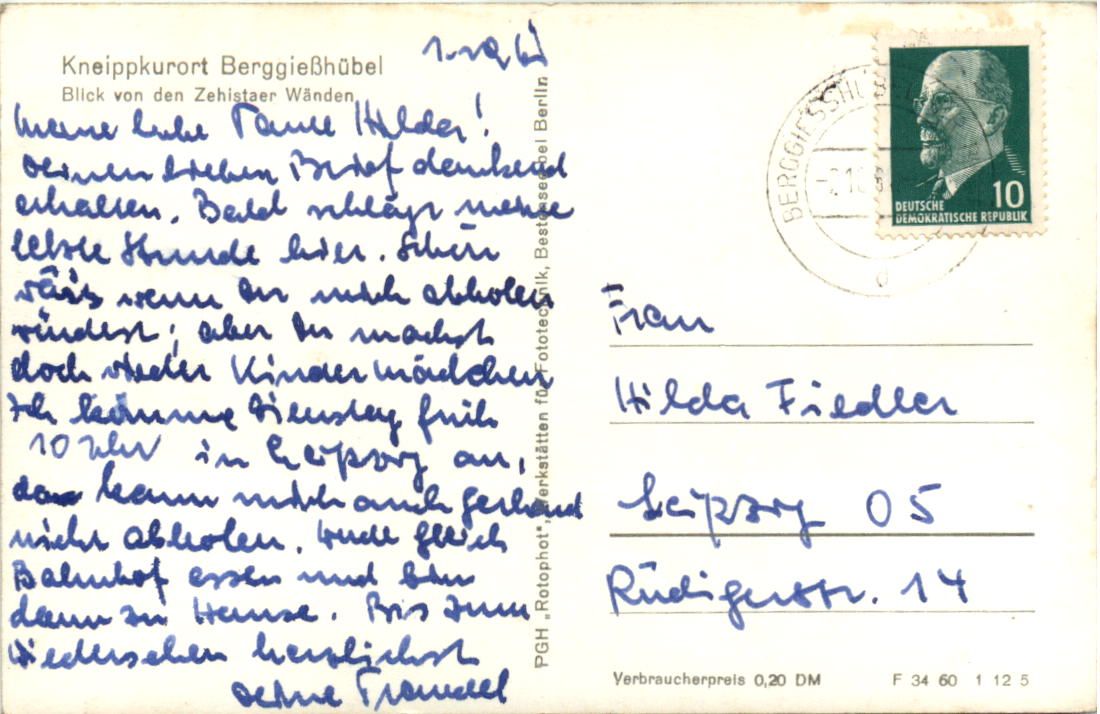 Kneippkurort Berggießhübel
Blick von den Zehistaer Wänden
Meine liebe Tante Hilda!
Deinen lieben Brief dankend
erhalten. Bald schlägt meine
letzte Stunde hier. Schön
wär's wenn Du mich abholen
würdest; aber Du machst
doch wieder Kindermädchen
Ich komme Dienstag früh
10 Uhr in Leipzig an,
da kann mich auch Gerhard
nicht abholen. Werde gleich
Bahnhof essen und bin
dann zu Hause. Bis zum
Wiedersehen herzlichst
Deine Traudel
PGH „Rotophot“, Werkstätten für Fototechnik, Bestensee bei Berlin
BERGGIESSHÜBEL
DEUTSCHE
DEMOKRATISCHE REPUBLIK
10
Frau
Hilda Fiedler
Leipzig O5
Rüdigerstr. 14
Verbraucherpreis 0,20 DM
F 34 60 1 12 5